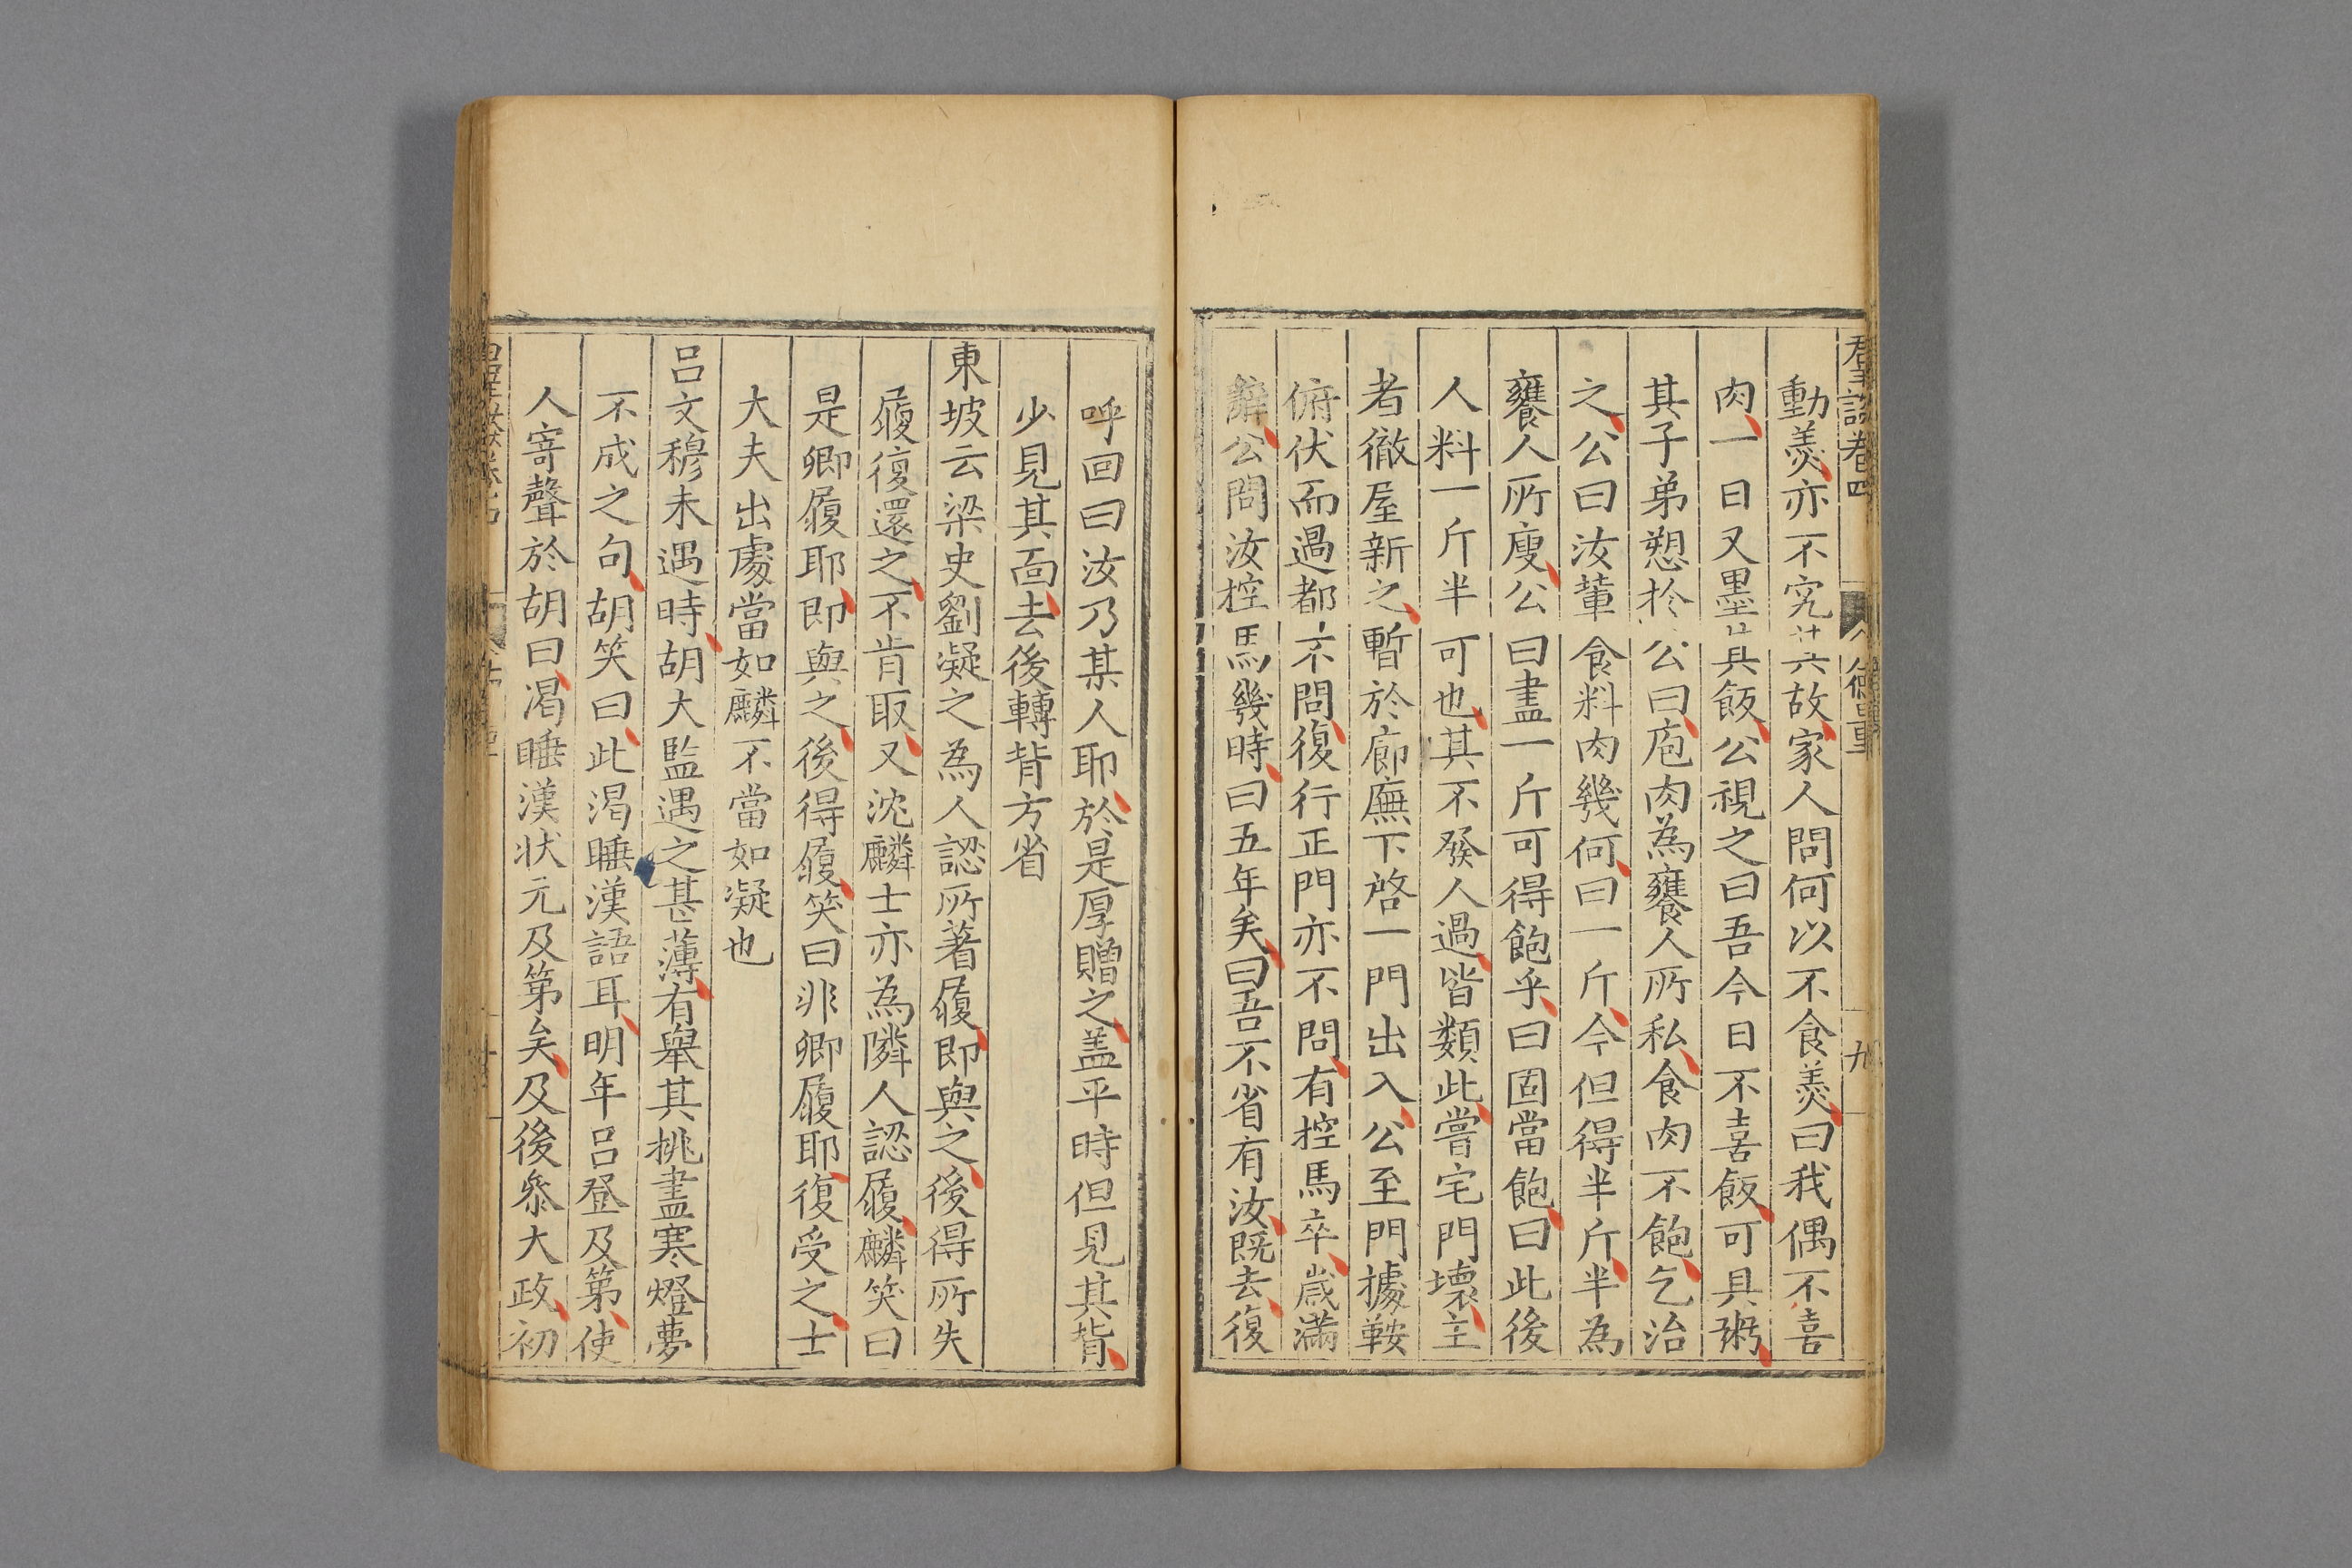 羣談卷四 德量 九
動羹亦不究其故家人問何以不食羹曰我偶不喜
肉一日又墨其飯公視之曰吾今日不喜飯可具粥
其子弟愬於公曰庖肉為饔人所私食肉不飽乞治
之公曰汝輩食料肉幾何曰一斤今但得半斤半為
饔人所廋公曰盡一斤可得飽乎曰固當飽曰此後
人料一斤半可也其不發人過皆類此嘗宅門壞主
者徹屋新之暫於廊廡下啓一門出入公至門據鞍
俯伏而過都不問復行正門亦不問有控馬卒歲滿
辭公問汝控馬幾時曰五年矣曰吾不省有汝既去復
呼回曰汝乃某人耶於是厚贈之盖平時但見其背
少見其面去後轉背方省
東坡云梁史劉凝之為人認所著履即與之後得所失
履復還之不肯取又沈麟士亦為隣人認履麟笑曰
是卿履耶即與之後得履笑曰非卿履耶復受之士
大夫出處當如麟不當如凝也
呂文穆未遇時胡大監遇之甚薄有舉其挑盡寒燈夢
不成之句胡笑曰此渴睡漢語耳明年呂登及第使
人寄聲於胡曰渴睡漢状元及第矣及後叅大政初